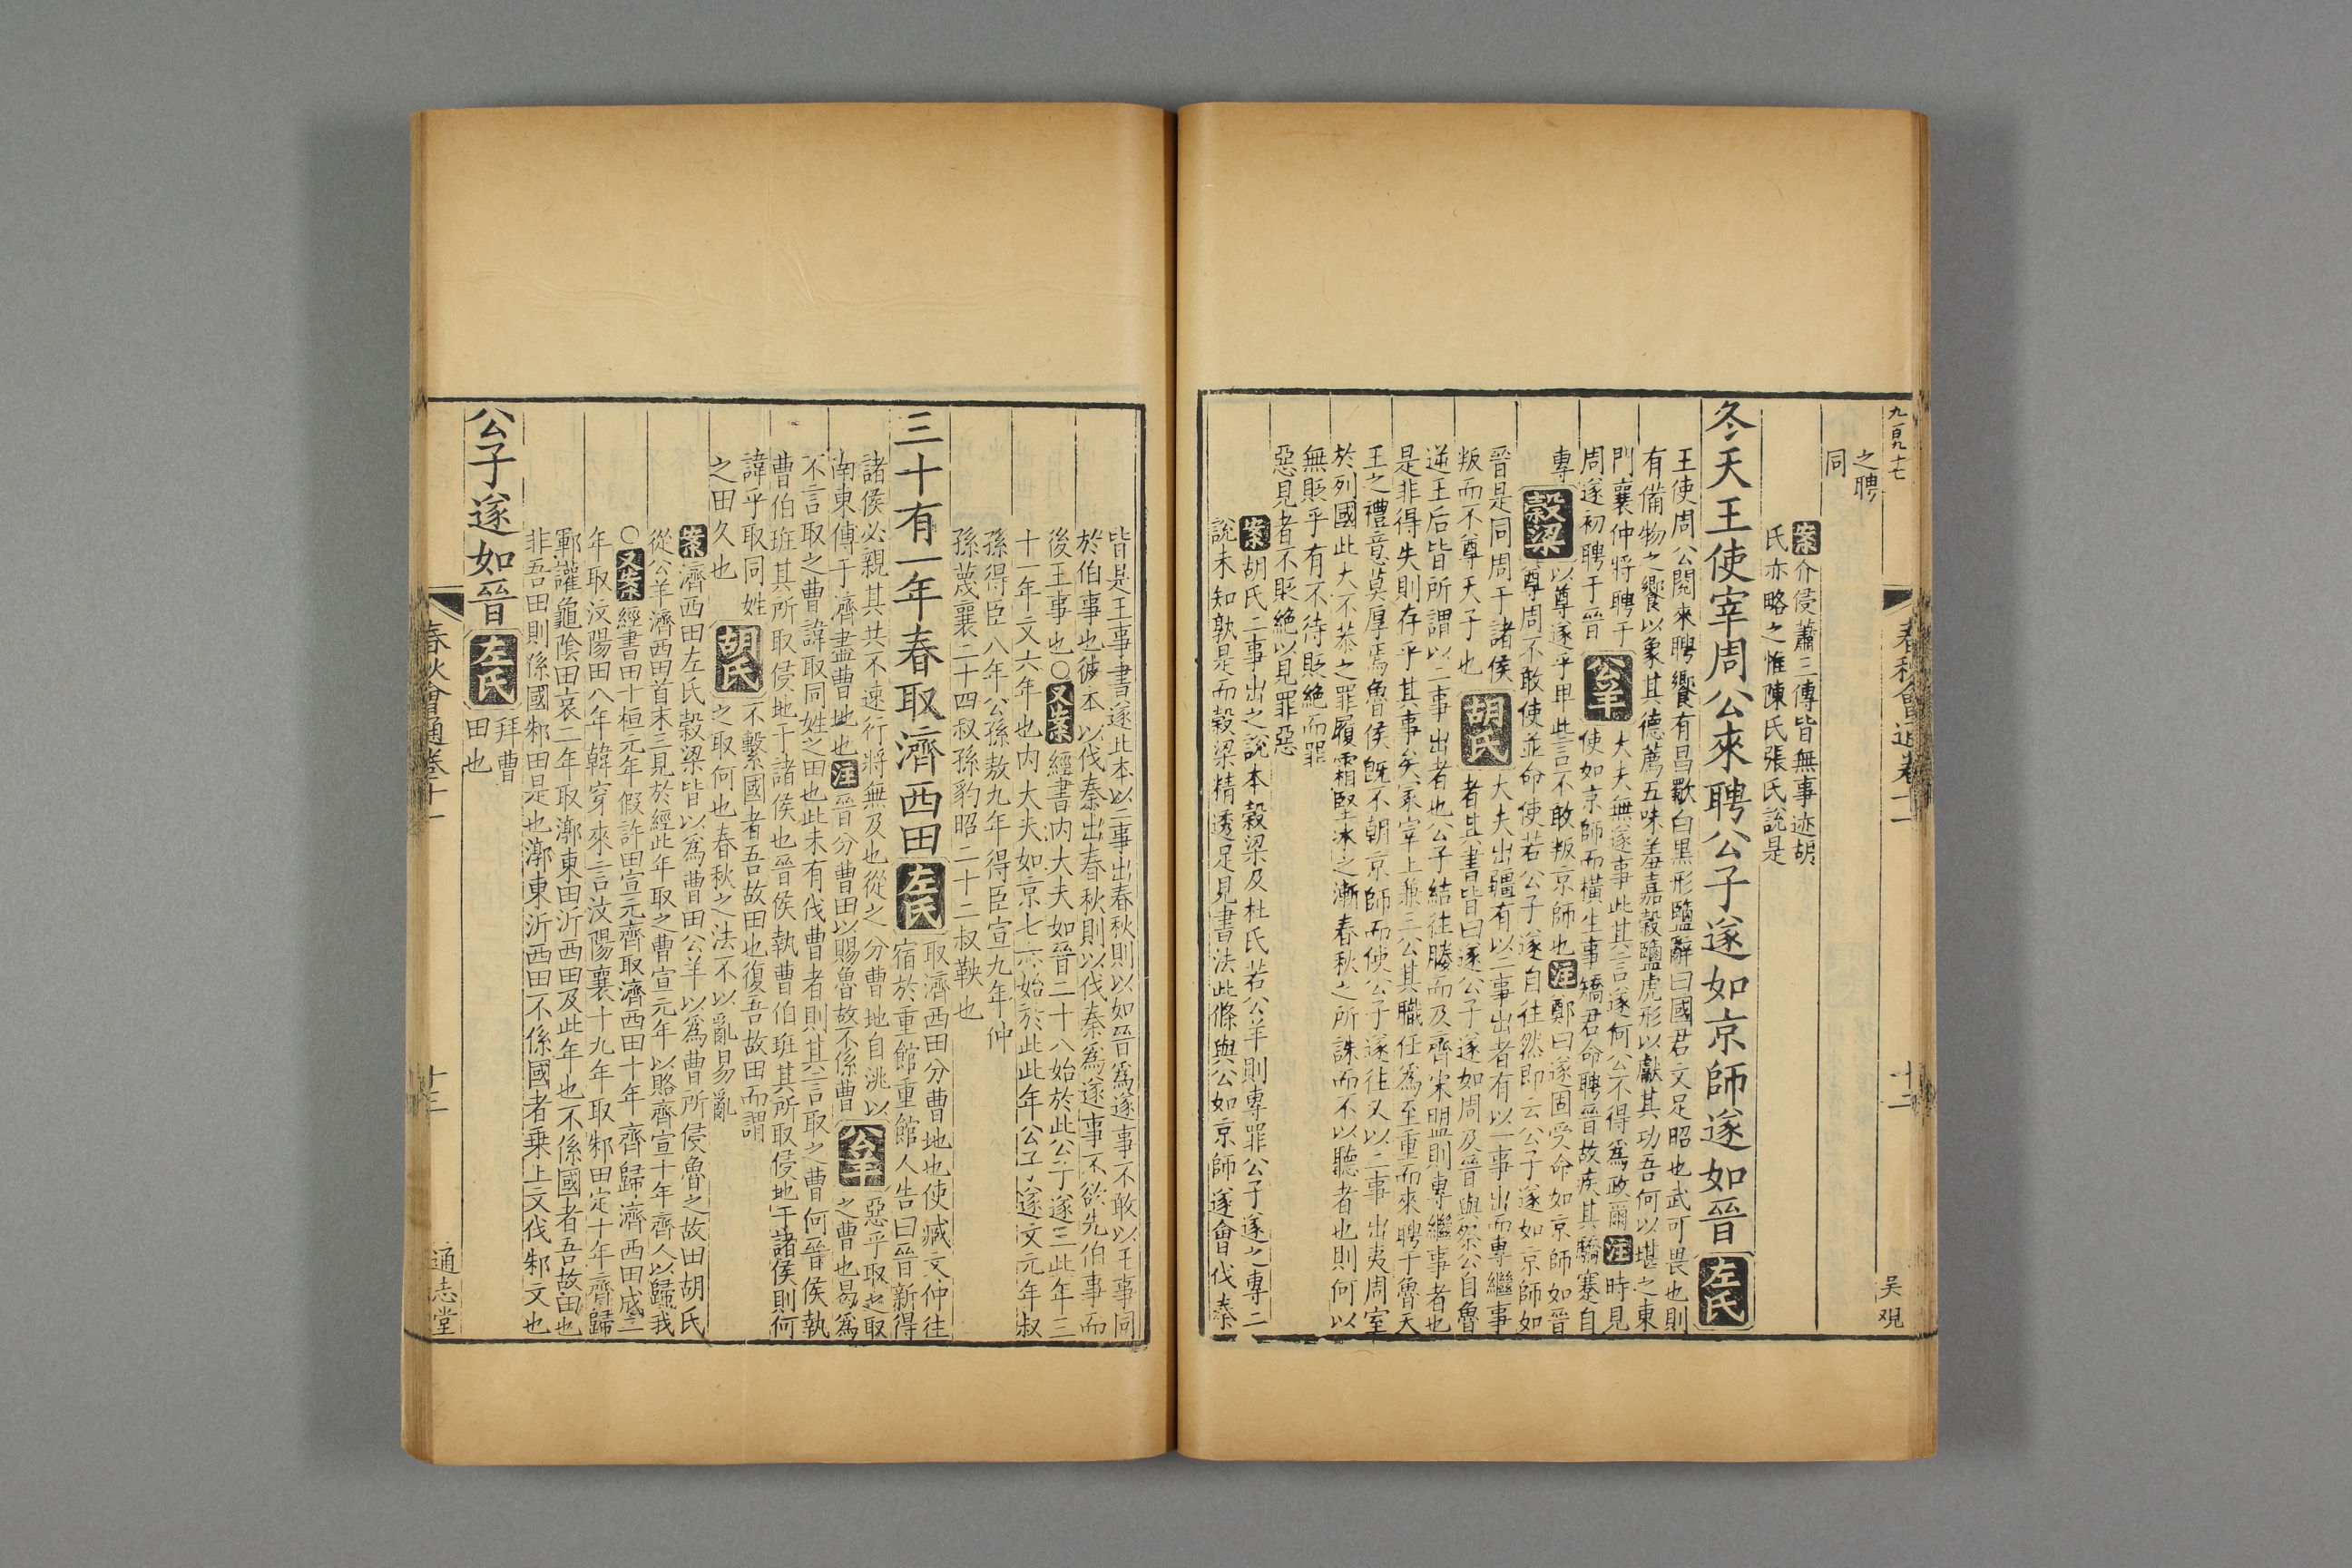 九百九十七
春秋會通卷十一
十二
吴观
之聘
同
案介侵蕭三傳皆無事迹胡
氏亦略之惟陳氏張氏說是
冬天王使宰周公來聘公子遂如京師遂如晉左氏
王使周公閱來聘饗有昌歜白黑形鹽辭曰國君文足昭也武可畏也則
有備物之饗以象其德薦五味羞嘉穀鹽虎形以獻其功吾何以堪之東
門襄仲將聘于
周遂初聘于晉
公羊
大夫無遂事此其言遂何公不得爲政爾注時見
使如京師而橫生事矯君命聘晉故疾其驕蹇自
專
穀梁
以尊遂乎卑此言不敢叛京師也注鄭曰遂固受命如京師如晉
尊周不敢使並命使若公子遂自往然即云公子遂如京師如
晉是同周于諸侯
叛而不尊天子也
胡氏
大夫出疆有以二事出者有以一事出而專繼事
者其書皆曰遂公子遂如周及晉與祭公自魯
逆王后皆所謂以二事出者也公子結往媵而及齊宋盟則專繼事者也
是非得失則存乎其事矣冢宰上兼三公其職任爲至重而來聘于魯天
王之禮意莫厚焉魯侯旣不朝京師而使公子遂往又以二事出夷周室
於列國此大不恭之罪履霜堅冰之漸春秋之所誅而不以聽者也則何以
無貶乎有不待貶絶而罪
惡見者不貶絶以見罪惡
案胡氏二事出之說本穀梁及杜氏若公羊則專罪公子遂之專二
說未知孰是而穀梁精透足見書法此條與公如京師遂會伐秦
皆是王事書遂此本以二事出春秋則以如晉爲遂事不敢以王事同
於伯事也彼本以伐秦出春秋則以伐秦爲遂事不欲先伯事而
後王事也○又案經書内大夫如晉二十八始於此公子遂三此年三
十一年文六年也内大夫如京七亦始於此此年公子遂文元年叔
孫得臣八年公孫敖九年得臣宣九年仲
孫蔑襄二十四叔孫豹昭二十二叔鞅也
三十有一年春取濟西田左氏
取濟西田分曹地也使臧文仲往
宿於重館重館人告曰晉新得
諸侯必親其共不速行將無及也從之分曹地自洮以
南東傅于濟盡曹地也注晉分曹田以賜魯故不係曹
公羊
惡乎取之取
之曹也曷爲
不言取之曹諱取同姓之田也此未有伐曹者則其言取之曹何晉侯執
曹伯班其所取侵地于諸侯也晉侯執曹伯班其所取侵地于諸侯則何
諱乎取同姓
之田久也
胡氏
不繫國者吾故田也復吾故田而謂
之取何也春秋之法不以亂易亂
案濟西田左氏穀梁皆以爲曹田公羊以爲曹所侵魯之故田胡氏
從公羊濟西田首末三見於經此年取之曹宣元年以賂齊宣十年齊人以歸我
○又案經書田十桓元年假許田宣元齊取濟西田十年齊歸濟西田成二
年取汶陽田八年韓穿來言汶陽襄十九年取邾田定十年齊歸
鄆讙龜陰田哀二年取漷東田沂西田及此年也不係國者吾故田也
非吾田則係國邾田是也漷東沂西田不係國者乗上文伐邾文也
公子遂如晉左氏
拜曹
田也
春秋會通卷十一
十三
通志堂